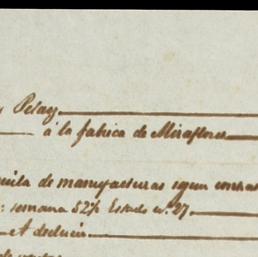 y Pelaz
á la fabrica de Miraflores
de manufacturas segun
semana 52ª Estado n. 27
A deducir